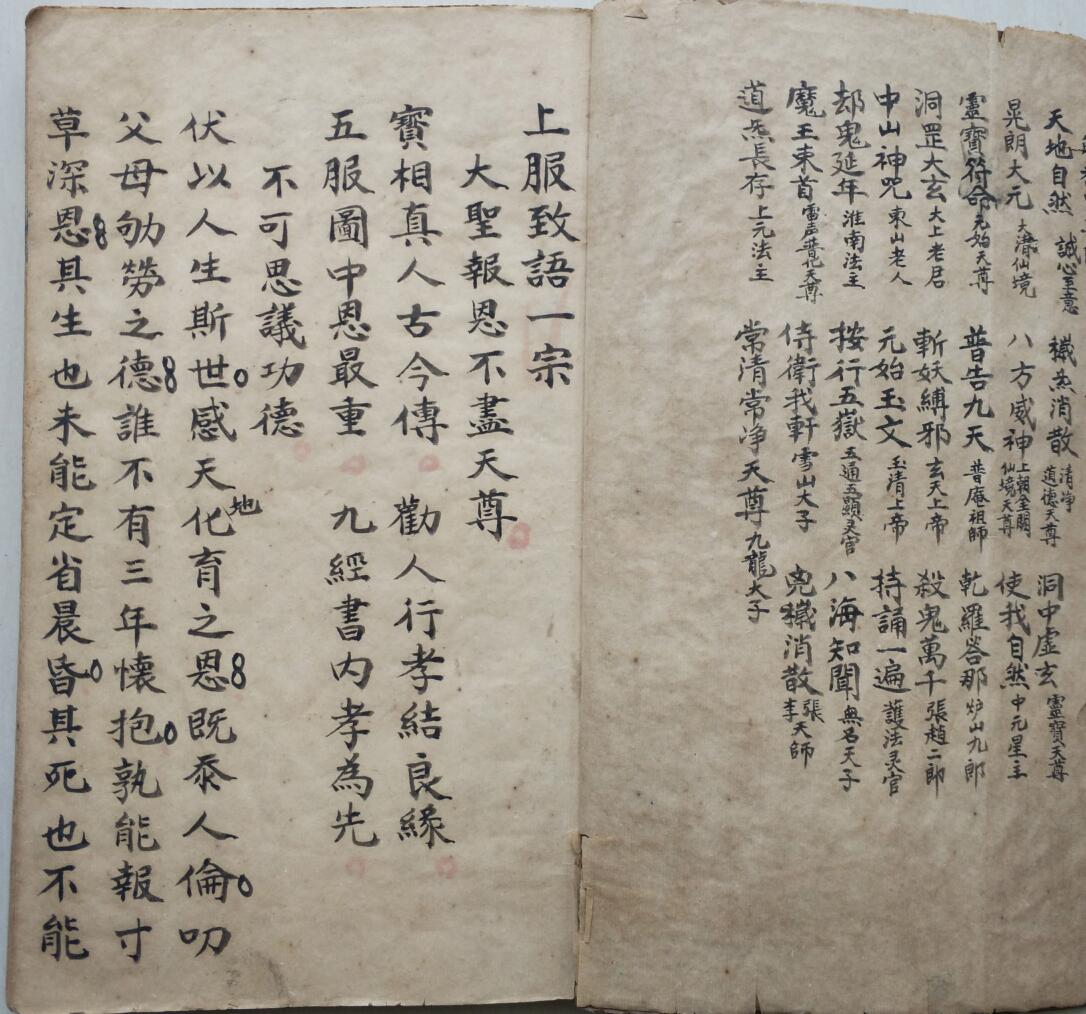 天地自然 誠心至意 穢炁消散 清净道德天尊 洞中虚玄 靈寶天尊
晃朗大元 大潛仙境 八方威神 上朝金闕仙境天尊 使我自然 中元星主
靈寶符命 元始天尊 普告九天 普庵祖師 乾羅答那 炉山九郎
洞罡大玄 大上老君 斬妖縛邪 玄天上帝 殺鬼萬千 張趙二郎
中山神咒 東山老人 元始玉文 玉清上帝 持誦一遍 護法灵官
却鬼延年 淮南法主 按行五嶽 五通五顯灵官 八海知聞 無名天子
魔王束首 雷声普化天尊 侍衛我軒 雪山大子 兇穢消散 張李天師
道炁長存 上元法主 常清常净天尊 九龍大子
上服致語一宗
大聖報恩不盡天尊
寳相真人古今傳 勸人行孝結良緣
五服圖中恩最重 九經書内孝為先
不可思議功德
伏以人生斯世感天地化育之恩既忝人倫叨
父母劬勞之德誰不有三年懐抱孰能報寸
草深恩其生也未能定省晨昏其死也不能